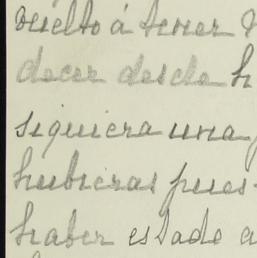 vuelto á tener
decer desde h
siquiera una
hubieras pues
haber estado a